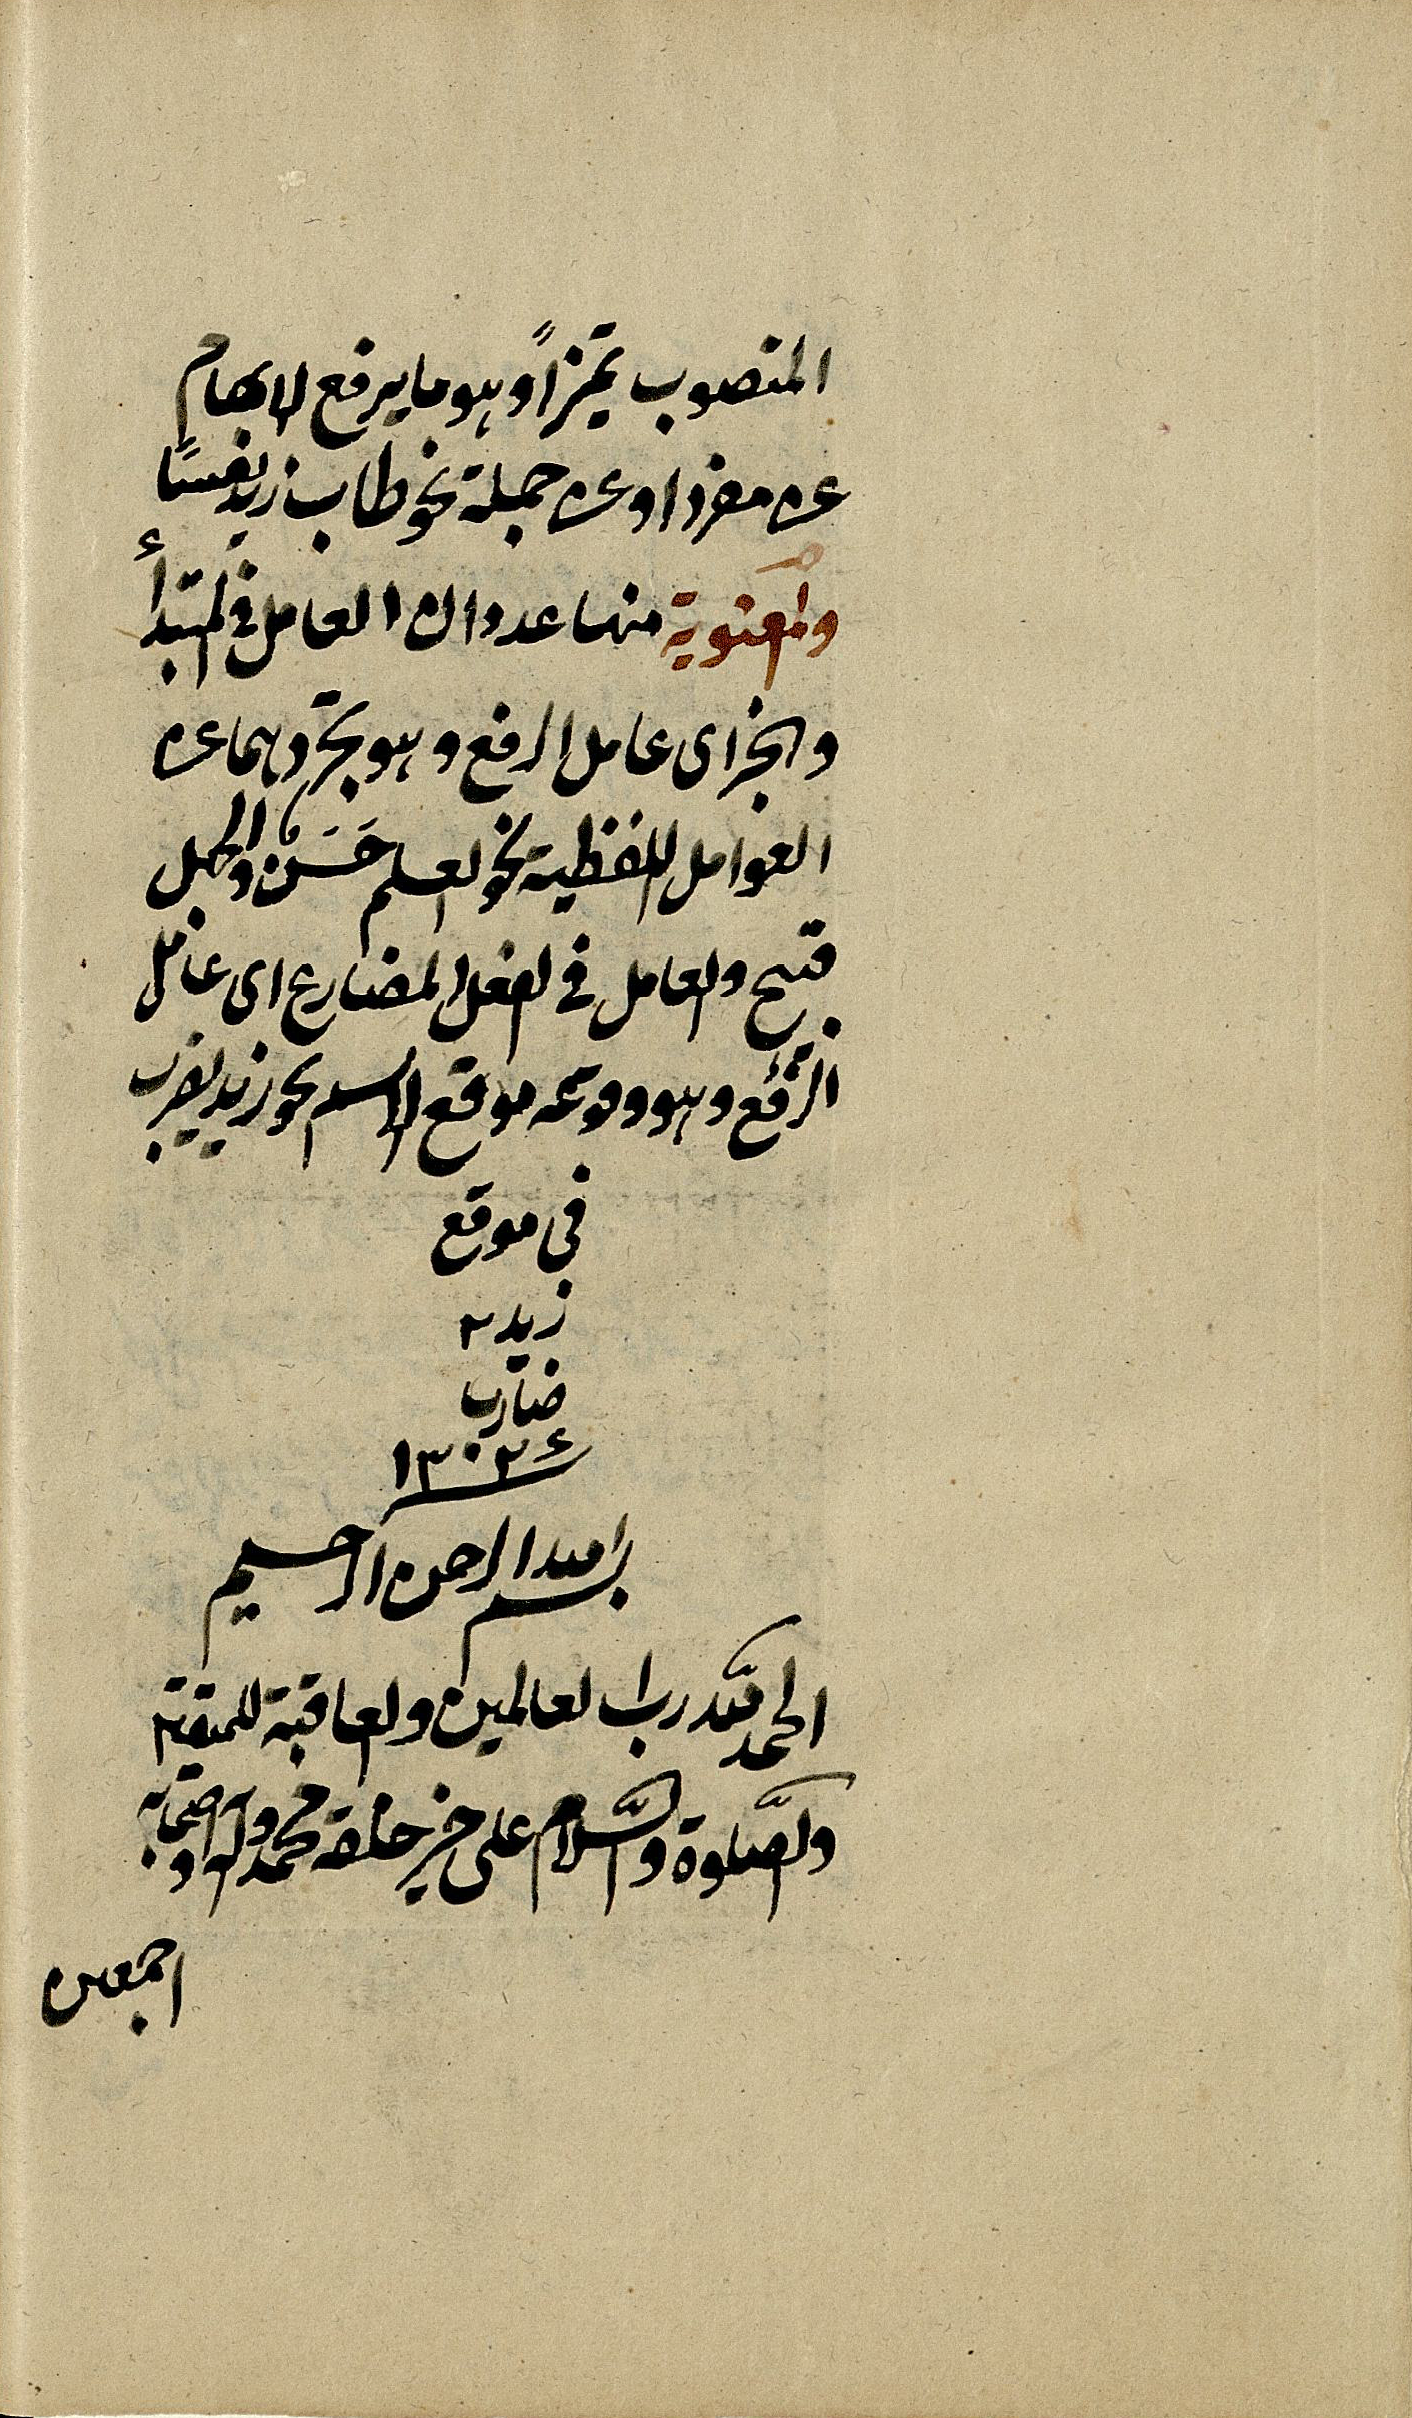 المنصوب تميزاً وهو ما يرفع الابهام
عن مفرد او عن جملة نحو طاب زيد نفسًا
والمعنوية منها عددان العامل في المبتدأ
والخبر اى عامل الرفع وهو تجردهما عن
العوامل اللفظية نحو العلم حَسَنٌ والجهل
قبيح والعامل في الفعل المضارع اى عامل
الرفع وهو وقوعه موقع الاسم نحو زيد يضرب
فى موقع
زيد
ضارب
١٣٠٢
بسم الله الرحمن الرحيم
الحمد لله رب العالمين والعاقبة للمتقين
والصَّلوة والسَّلام على خير خلقه محمد وآله واصحابه
اجمعين